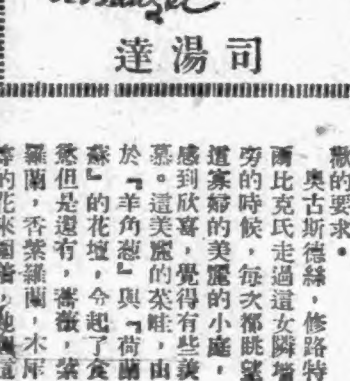 司湯達
的要求。
奧古斯德絲，修路特
爾比克氏走過這女隣墻
旁的時候，每次都眺望
這寡婦的美麗的小庭，
感到欣喜，覺得有些羨
慕。這美麗的菜畦，由
於『羊角葱』與『荷蘭
蘇』的花壇，令起了食
慾但是還有，薔薇，紫
羅蘭，香紫羅蘭，木犀
的花來圍